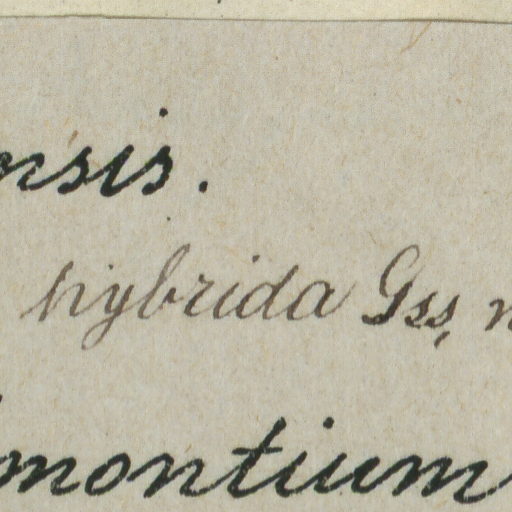 nsis.
hybrida Gss, n
montium